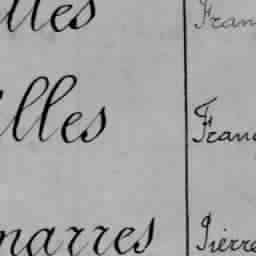 lles Fran
illes Franç
marres Pierre